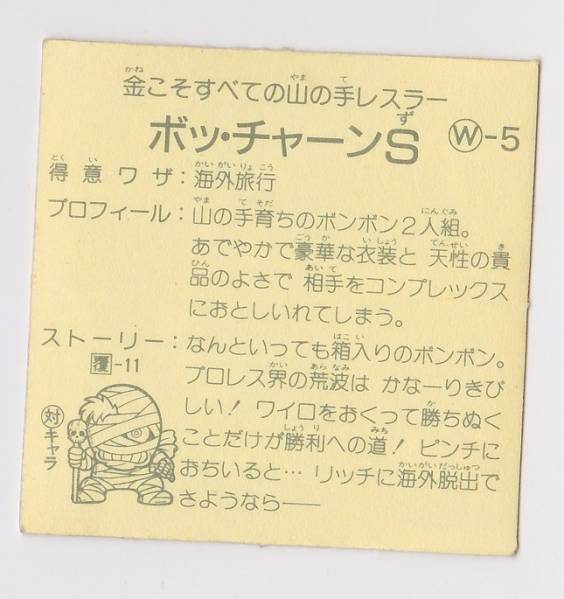 金こそすべての山の手レスラー
ボッ・チャーンS Ⓦ-5
得意ワザ：海外旅行
プロフィール：山の手育ちのボンボン2人組。
あでやかで豪華な衣装と 天性の貴
品のよさで 相手をコンプレックス
におとしいれてしまう。
ストーリー：なんといっても箱入りのボンボン。
覆-11
プロレス界の荒波は かなーりきび
しい！ ワイロをおくって勝ちぬく
ことだけが勝利への道！ ピンチに
おちいると… リッチに海外脱出で
さようなら──
対キャラ